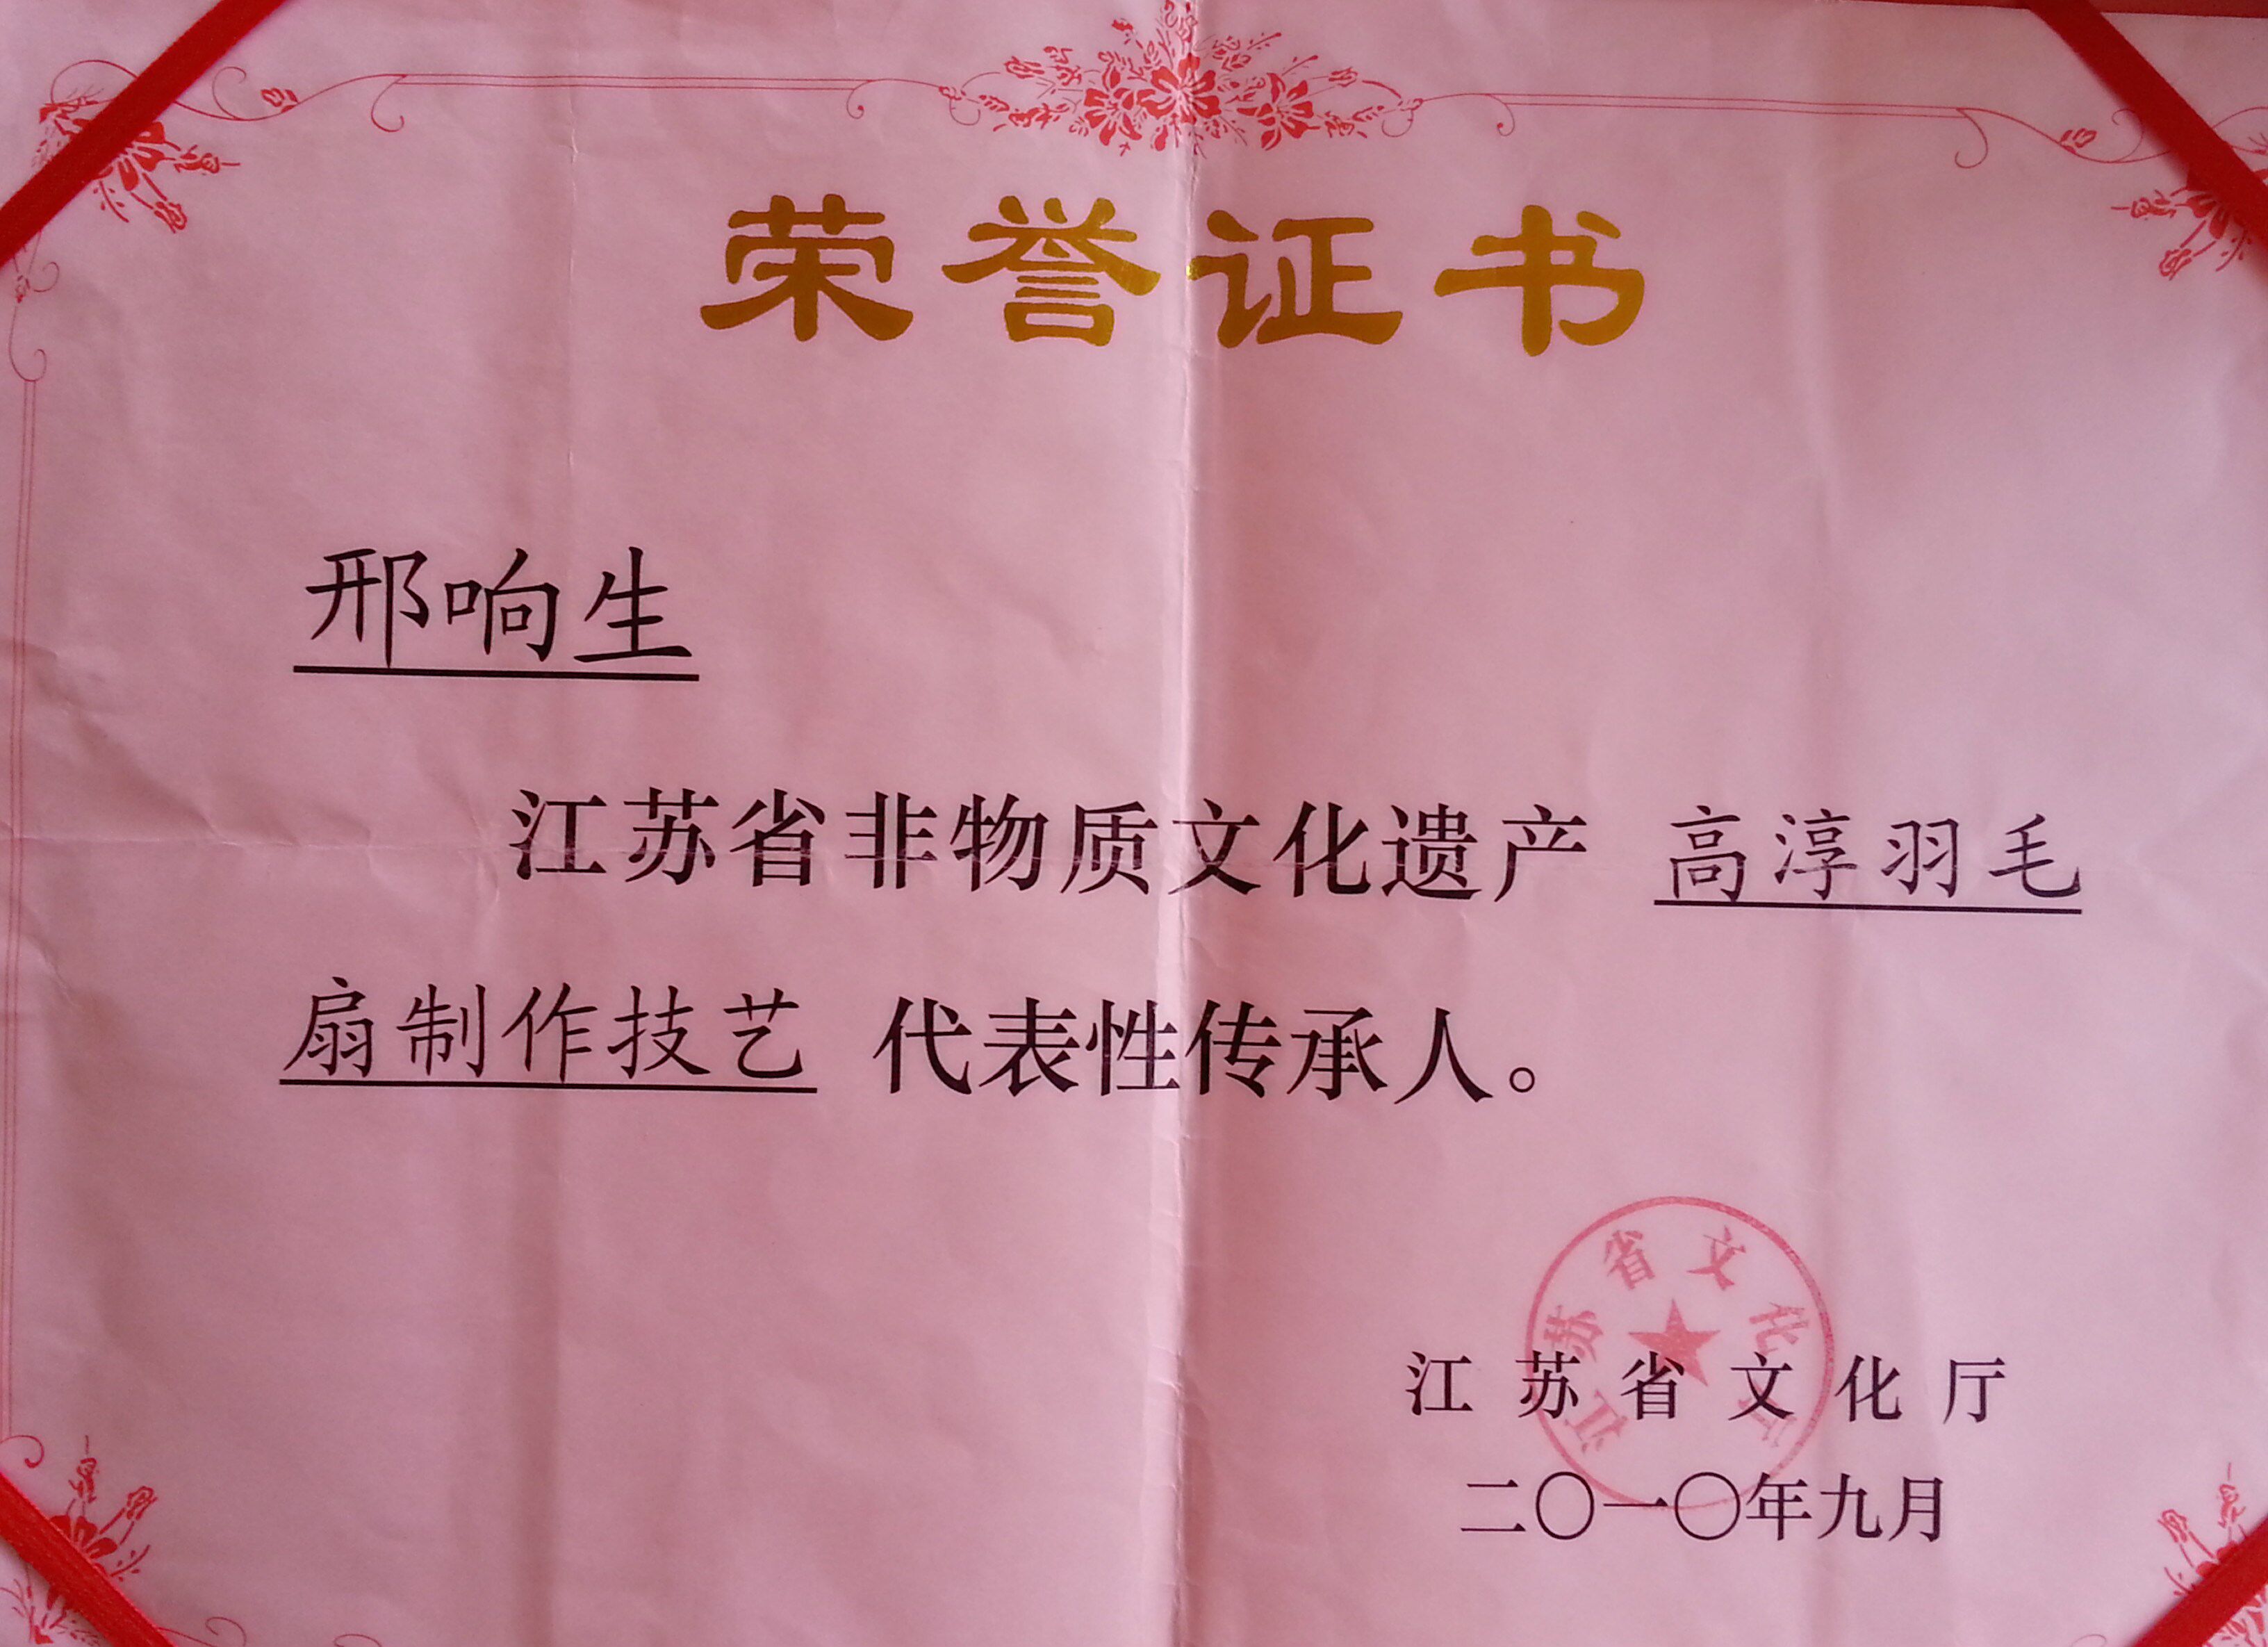 荣誉证书
邢响生
江苏省非物质文化遗产 高淳羽毛
扇制作技艺 代表性传承人。
江苏省文化厅
江苏省文化厅
二〇一〇年九月